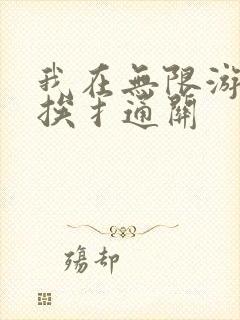 我在無限游
挨扌通關
殤却